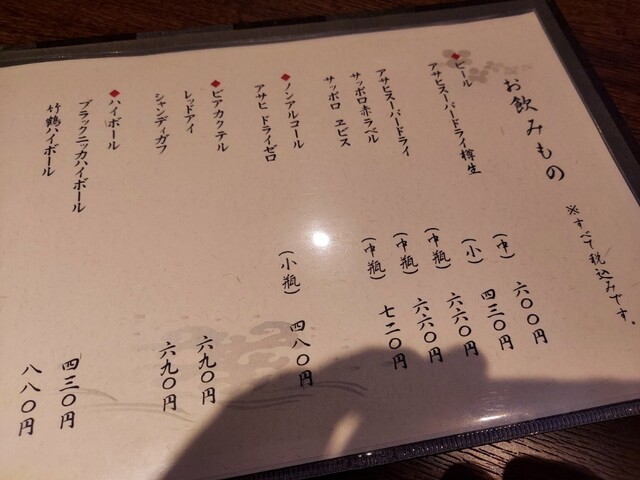 お飲みもの
※すべて税込みです。
◆ビール
アサヒスーパードライ樽生 (中) 六〇〇円
(小) 四三〇円
アサヒスーパードライ (中瓶) 六六〇円
サッポロ赤ラベル (中瓶) 六六〇円
サッポロ ヱビス (中瓶) 七二〇円
◆ノンアルコール
アサヒ ドライゼロ (小瓶) 四八〇円
◆ビアカクテル
レッドアイ 六九〇円
シャンディガフ 六九〇円
◆ハイボール
ブラックニッカハイボール 四三〇円
竹鶴ハイボール 八八〇円